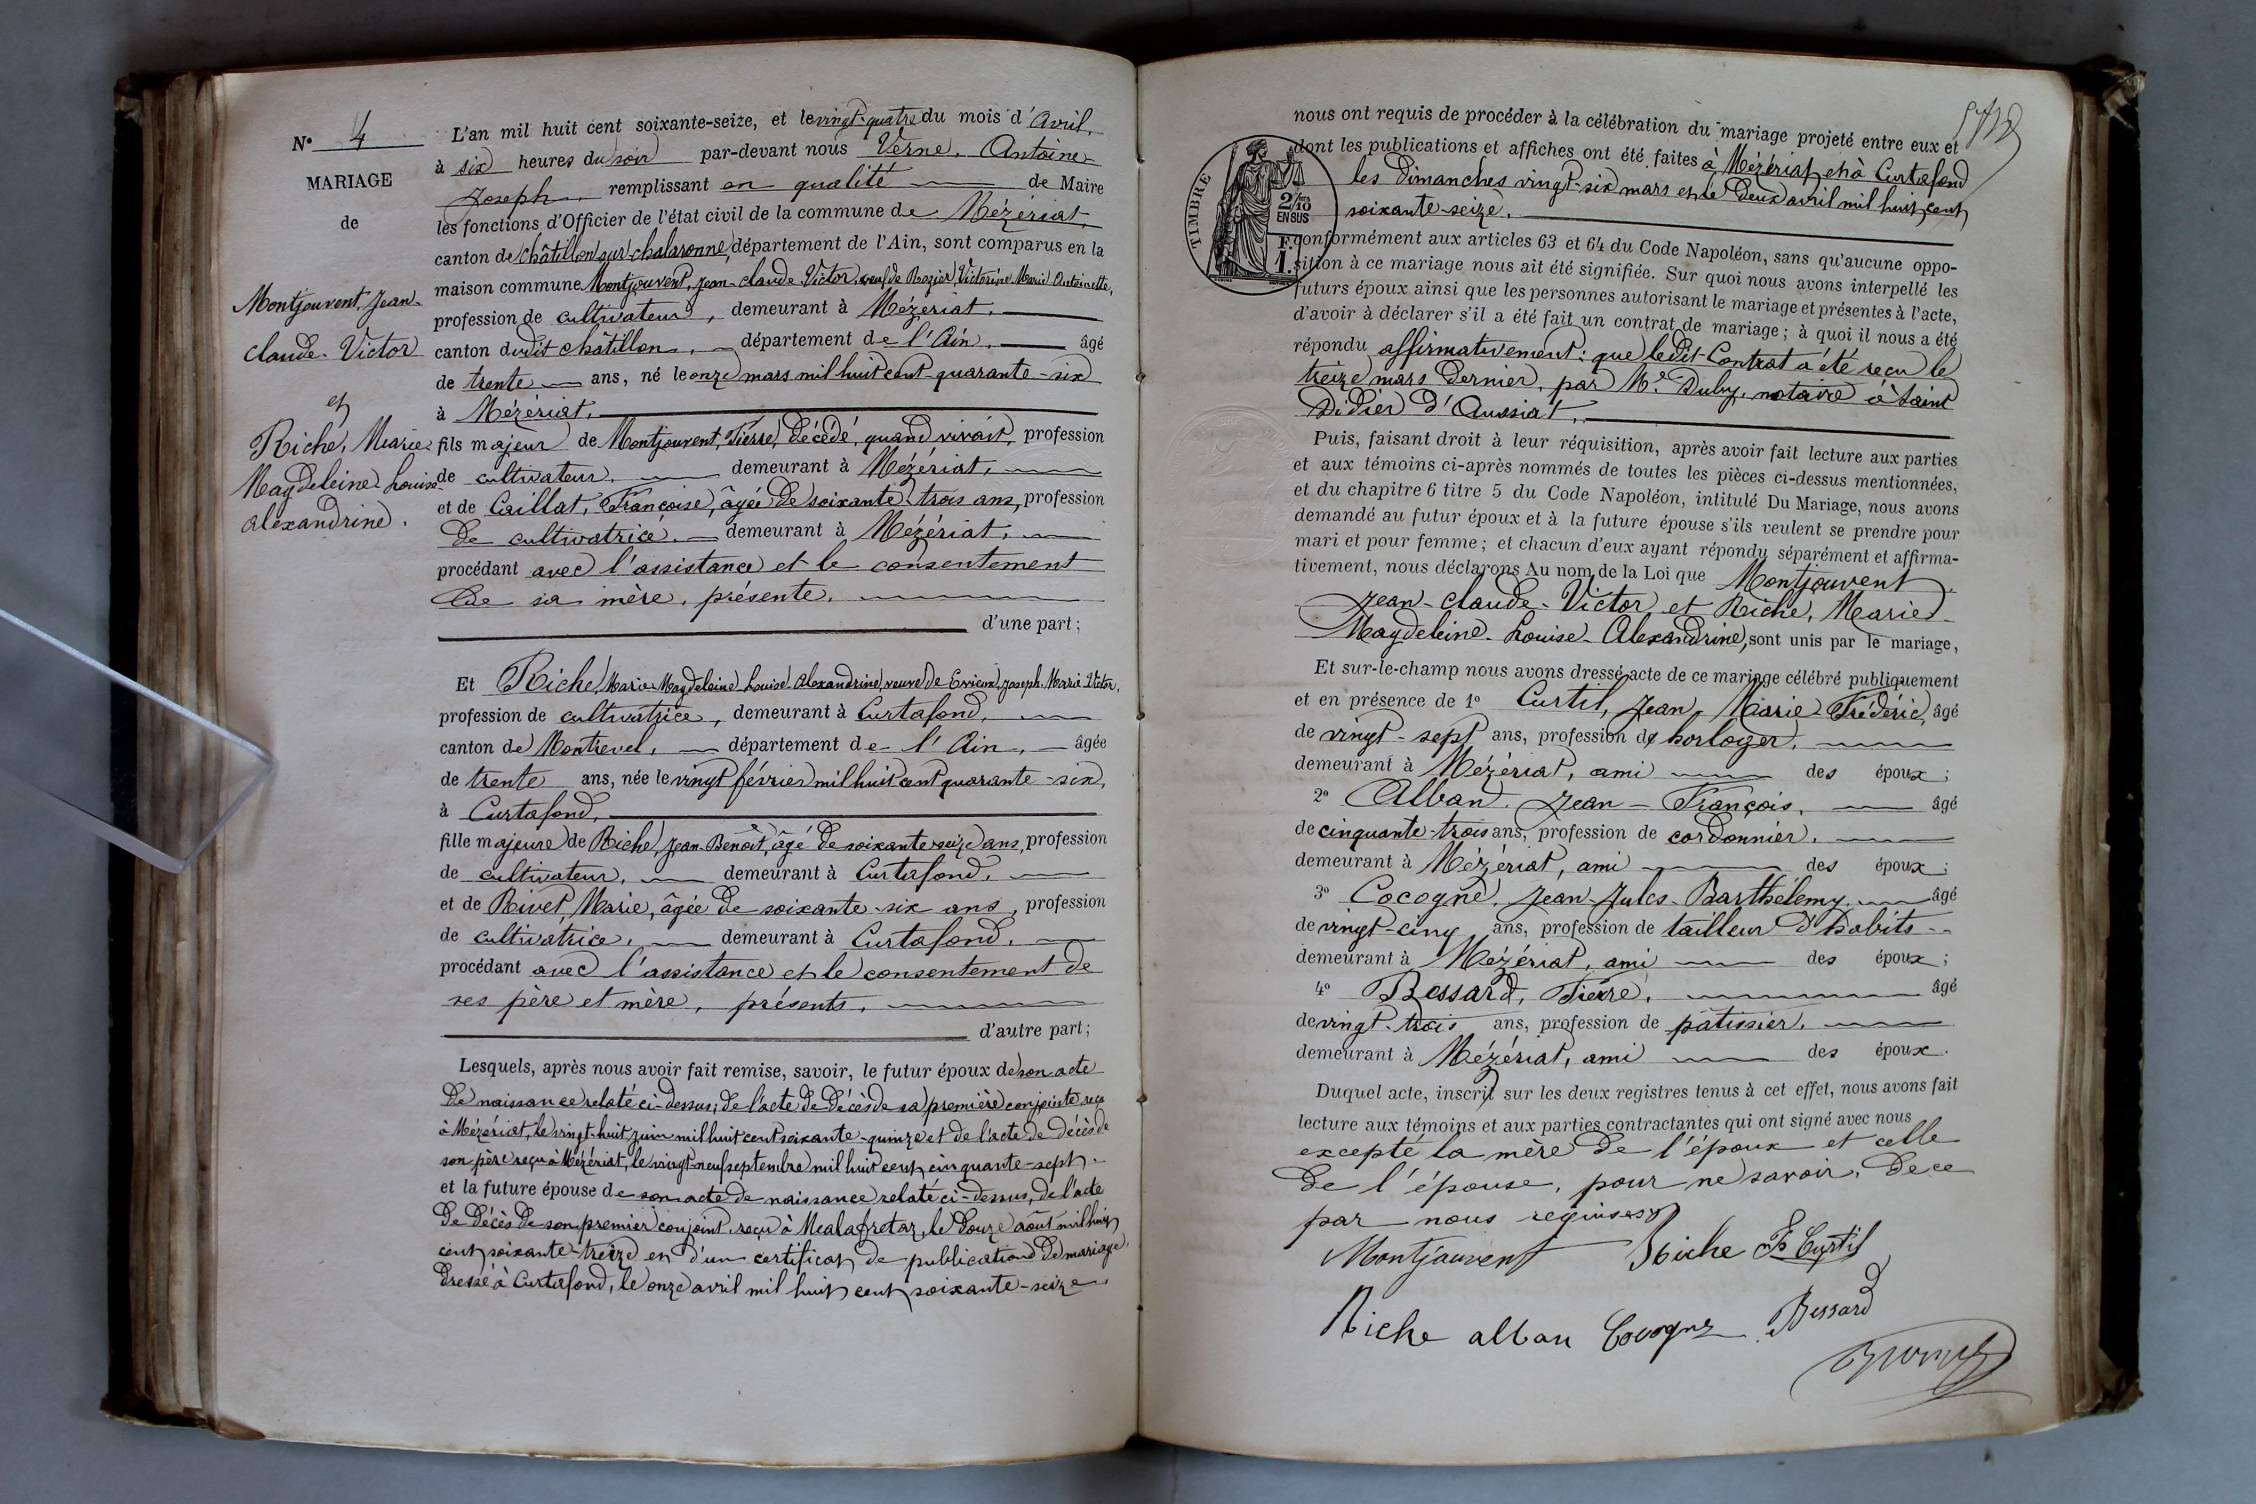 N° 4
MARIAGE
de
Montjouvent, Jean-
Claude-Victor
et
Riche, Marie-
Magdeleine Louise
Alexandrine.
L'an mil huit cent soixante-seize, et le vingt-quatre du mois d'Avril,
à six heures du soir par-devant nous Verne, Antoine-
Joseph, remplissant en qualité de Maire
les fonctions d'Officier de l'état civil de la commune de Mézériat,
canton de Châtillon sur chalaronne, département de l'Ain, sont comparus en la
maison commune Montjouvent, Jean-Claude-Victor, veuf de Rozier, Victorine Marie Antoinette,
profession de cultivateur, demeurant à Mézériat,
canton dudit Châtillon, département de l'Ain, âgé
de trente ans, né le onze mars mil huit cent quarante-six
à Mézériat,
fils majeur de Montjouvent, Pierre, décédé, quand vivait, profession
de cultivateur, demeurant à Mézériat,
et de Caillat, Françoise, âgée de soixante-trois ans, profession
de cultivatrice, demeurant à Mézériat,
procédant avec l'assistance et le consentement
de sa mère, présente,
d'une part;
Et Riche, Marie-Magdeleine Louise Alexandrine, veuve de Joseph Marie Victor,
profession de cultivatrice, demeurant à Curtafond,
canton de Montrevel, département de l'Ain, âgée
de trente ans, née le vingt février mil huit cent quarante-six,
à Curtafond,
fille majeure de Riche, Jean-Benoît, âgé de soixante seize ans, profession
de cultivateur, demeurant à Curtafond,
et de Rivet, Marie, âgée de soixante-six ans, profession
de cultivatrice, demeurant à Curtafond,
procédant avec l'assistance et le consentement de
ses père et mère, présents,
d'autre part;
Lesquels, après nous avoir fait remise, savoir, le futur époux de son acte
de naissance relaté ci-dessus; de l'acte de décès de sa première conjointe reçu
à Mézériat, le vingt-huit juin mil huit cent soixante-quinze et de l'acte de décès de
son père reçu à Mézériat, le vingt-neuf septembre mil huit cent cinquante-sept.
et la future épouse de son acte de naissance relaté ci-dessus, de l'acte
de décès de son premier conjoint, reçu à Malafretaz, le douze août mil huit
cent soixante-treize et d'un certificat de publication de mariage,
dressé à Curtafond, le onze avril mil huit cent soixante-seize
nous ont requis de procéder à la célébration du mariage projeté entre eux et
dont les publications et affiches ont été faites à Mézériat et à Curtafond
les dimanches vingt-six mars et le deux avril mil huit cent
soixante-seize,
TIMBRE
2/10
EN SUS
F.
1.
conformément aux articles 63 et 64 du Code Napoléon, sans qu'aucune oppo-
sition à ce mariage nous ait été signifiée. Sur quoi nous avons interpellé les
futurs époux ainsi que les personnes autorisant le mariage et présentes à l'acte,
d'avoir à déclarer s'il a été fait un contrat de mariage; à quoi il nous a été
répondu affirmativement: que ledit Contrat a été reçu le
treize mars dernier, par Me. Duby, notaire à Saint
Didier d'Aussiat,
Puis, faisant droit à leur réquisition, après avoir fait lecture aux parties
et aux témoins ci-après nommés de toutes les pièces ci-dessus mentionnées,
et du chapitre 6 titre 5 du Code Napoléon, intitulé Du Mariage, nous avons
demandé au futur époux et à la future épouse s'ils veulent se prendre pour
mari et pour femme; et chacun d'eux ayant répondu séparément et affirma-
tivement, nous déclarons Au nom de la Loi que Montjouvent
Jean-Claude-Victor et Riche, Marie-
Magdeleine-Louise-Alexandrine, sont unis par le mariage,
Et sur-le-champ nous avons dressé acte de ce mariage célébré publiquement
et en présence de 1° Curtil, Jean-Marie-Frédéric, âgé
de vingt-sept ans, profession de horloger,
demeurant à Mézériat, ami des époux;
2° Alban, Jean-François, âgé
de cinquante-trois ans, profession de cordonnier,
demeurant à Mézériat, ami des époux;
3° Cocogne, Jean-Jules-Barthélemy, âgé
de vingt-cinq ans, profession de tailleur d'habits
demeurant à Mézériat, ami des époux;
4° Bessard, Pierre, âgé
de vingt-trois ans, profession de pâtissier,
demeurant à Mézériat, ami des époux.
Duquel acte, inscrit sur les deux registres tenus à cet effet, nous avons fait
lecture aux témoins et aux parties contractantes qui ont signé avec nous
excepté la mère de l'époux et celle
de l'épouse, pour ne savoir, de ce
par nous requises
Montjouvent Riche Curtil
Riche alban Cocogne Bessard